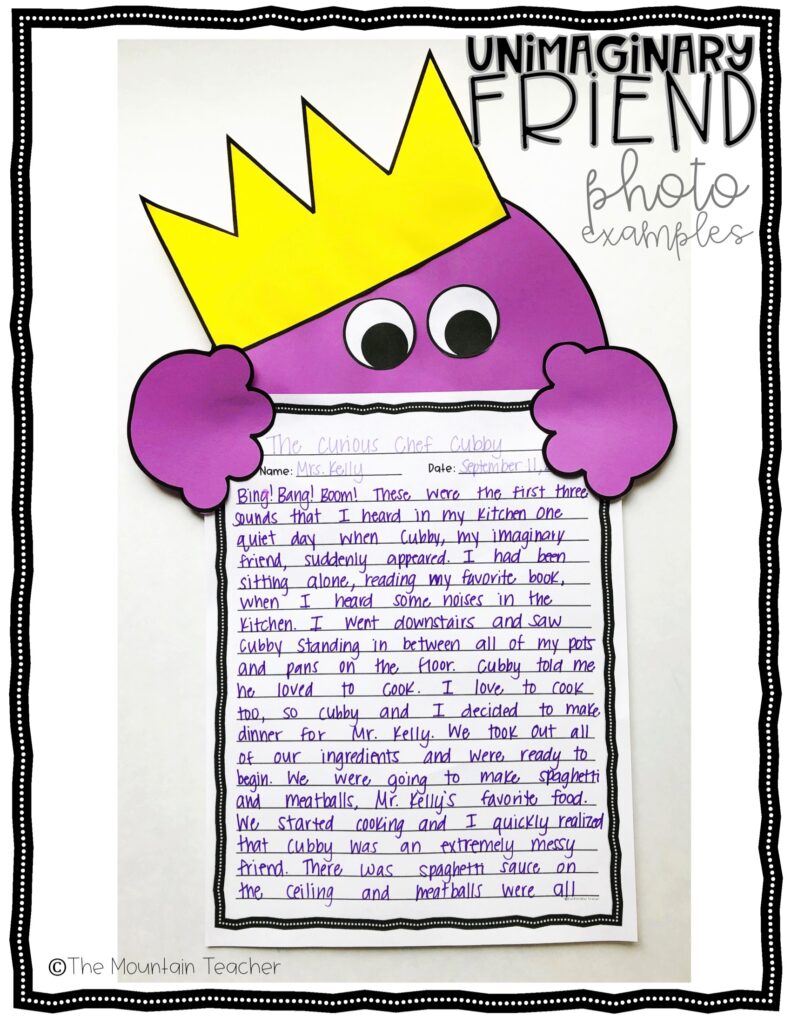 UNIMAGINARY
FRIEND
photo
examples
The Curious Chef Cubby
Name: Mrs. Kelly Date: September 11,
Bing! Bang! Boom! These were the first three
sounds that I heard in my kitchen one
quiet day when Cubby, my imaginary
friend, suddenly appeared. I had been
sitting alone, reading my favorite book,
when I heard some noises in the
kitchen. I went downstairs and saw
Cubby standing in between all of my pots
and pans on the floor. Cubby told me
he loved to cook. I love to cook
too, so Cubby and I decided to make
dinner for Mr. Kelly. We took out all
of our ingredients and were ready to
begin. We were going to make spaghetti
and meatballs, Mr. Kelly's favorite food.
We started cooking and I quickly realized
that Cubby was an extremely messy
friend. There was spaghetti sauce on
the ceiling and meatballs were all
©The Mountain Teacher